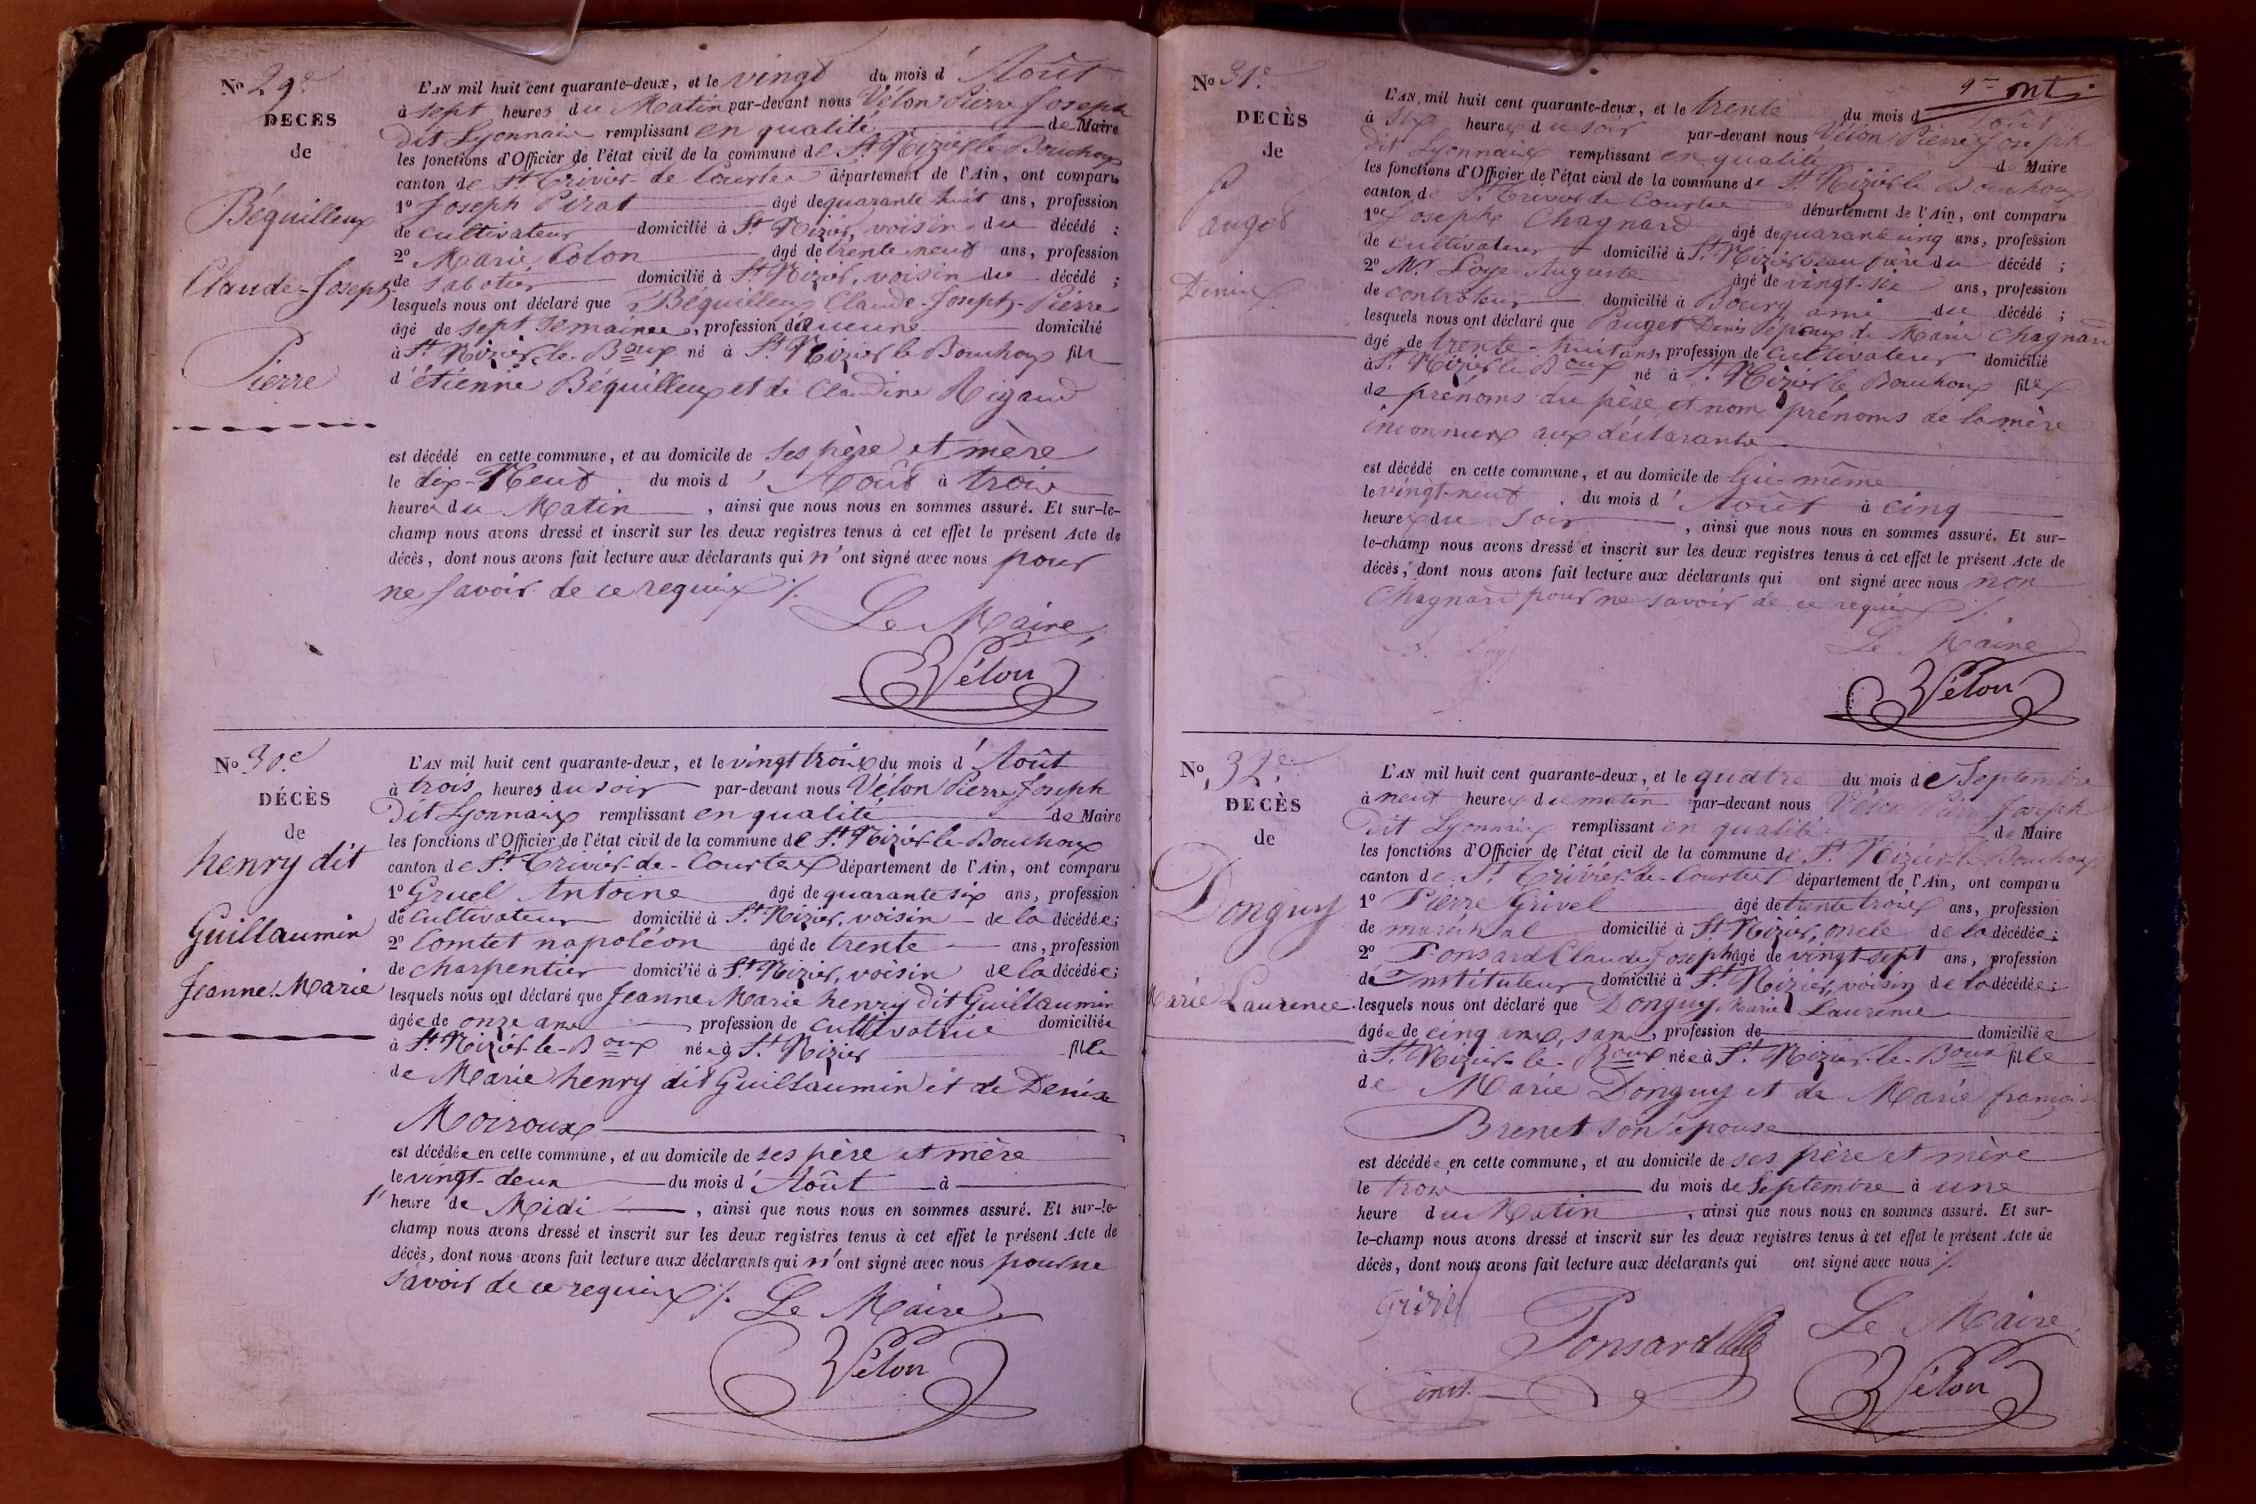 No 29e
DECES
de
Béquilleux
Claude-Joseph
Pierre
L'AN mil huit cent quarante-deux, et le vingt du mois d'Août
à sept heures du Matin par-devant nous Vélon Pierre Joseph
dit Lyonnais remplissant en qualité de Maire
les fonctions d'Officier de l'état civil de la commune de St Nizier le Bouchoux
canton de St Trivier-de Courtes département de l'Ain, ont comparu
1o Joseph Pirat âgé de quarante huit ans, profession
de cultivateur domicilié à St Nizier, voisin du décédé ;
2o Marie Colon âgé de trente neuf ans, profession
de sabotier domicilié à St Nizier, voisin du décédé ;
lesquels nous ont déclaré que Béquilleux Claude-Joseph-Pierre
âgé de sept semaines, profession d'aucune domicilié
à St Nizier-le-Boux né à St Nizier le Bouchoux fils
d'étienne Béquilleux et de Claudine Rigaud
est décédé en cette commune, et au domicile de ses père et mère
le dix-Neuf du mois d'Août à trois
heures du Matin, ainsi que nous nous en sommes assuré. Et sur-le-
champ nous avons dressé et inscrit sur les deux registres tenus à cet effet le présent Acte de
décès, dont nous avons fait lecture aux déclarants qui n'ont signé avec nous pour
ne savoir de ce requis /.
Le Maire,
Vélon
No 30e
DÉCÈS
de
henry dit
Guillaumin
Jeanne Marie
L'AN mil huit cent quarante-deux, et le vingt trois du mois d'Août
à trois heures du soir par-devant nous Vélon Pierre Joseph
Dit Lyonnais remplissant en qualité de Maire
les fonctions d'Officier de l'état civil de la commune de St Nizier-le-Bouchoux
canton de St Trivier-de-Courtes département de l'Ain, ont comparu
1o Gruel Antoine âgé de quarante six ans, profession
de cultivateur domicilié à St Nizier, voisin de la décédée;
2o Comtet napoléon âgé de trente ans, profession
de charpentier domicilié à St Nizier, voisin de la décédée;
lesquels nous ont déclaré que Jeanne Marie henry dit Guillaumin
âgée de onze ans profession de cultivatrice domiciliée
à St Nizier-le-Boux née à St Nizier fille
de Marie henry dit Guillaumin et de Denise
Moiroux
est décédée en cette commune, et au domicile de ses père et mère
le vingt-deux du mois d'Août à
1' heure de Midi, ainsi que nous nous en sommes assuré. Et sur-le-
champ nous avons dressé et inscrit sur les deux registres tenus à cet effet le présent Acte de
décès, dont nous avons fait lecture aux déclarants qui n'ont signé avec nous pour ne
savoir de ce requis /. Le Maire
Vélon
No 31e
DECÈS
de
Pauget
Denis
L'AN mil huit cent quarante-deux, et le trente du mois d'Août
à six heures du soir par-devant nous Vélon Pierre Joseph
dit Lyonnais remplissant en qualité d Maire
les fonctions d'Officier de l'état civil de la commune de St Nizier le Bouchoux
canton de St Trivier de Courtes département de l'Ain, ont comparu
1o Joseph Chagnard âgé de quarante cinq ans, profession
de cultivateur domicilié à St Nizier beau frère du décédé ;
2o Mr Loye Auguste âgé de vingt-six ans, profession
de controleur domicilié à Bourg ami du décédé ;
lesquels nous ont déclaré que Pauget Denis époux de Marie Chagnard
âgé de trente-huit ans, profession de cultivateur domicilié
à St Nizier le Boux né à St Nizier le Bouchoux fils
de prénoms du père et nom prénoms de la mère
inconnus aux déclarants
est décédé en cette commune, et au domicile de lui-même
le vingt-neuf du mois d'Août à cinq
heures du soir, ainsi que nous nous en sommes assuré. Et sur-
le-champ nous avons dressé et inscrit sur les deux registres tenus à cet effet le présent Acte de
décès, dont nous avons fait lecture aux déclarants qui ont signé avec nous non
Chagnard pour ne savoir de ce requis /.
Le Maire
Vélon
No 32e
DECÈS
de
Donguy
Marie Laurence
L'AN mil huit cent quarante-deux, et le quatre du mois de Septembre
à neuf heures du matin par-devant nous Vélon Pierre Joseph
Dit Lyonnais remplissant en qualité de Maire
les fonctions d'Officier de l'état civil de la commune de St Nizier le Bouchoux
canton de St Trivier-de-Courtes département de l'Ain, ont comparu
1o Pierre Grivel âgé de trente trois ans, profession
de maréchal domicilié à St Nizier, oncle de la décédée;
2o Ponsard Claude Joseph âgé de vingt sept ans, profession
de Instituteur domicilié à St Nizier, voisin de la décédée;
lesquels nous ont déclaré que Donguy Marie Laurence
âgée de cinq ans, sans, profession de domiciliée
à St Nizier-le-Boux née à St Nizier-le-Boux fille
de Marie Donguy et de Marie françoise
Brenet son épouse
est décédée en cette commune, et au domicile de ses père et mère
le trois du mois de Septembre à une
heure du Matin, ainsi que nous nous en sommes assuré. Et sur-
le-champ nous avons dressé et inscrit sur les deux registres tenus à cet effet le présent Acte de
décès, dont nous avons fait lecture aux déclarants qui ont signé avec nous /.
Grivel
Ponsard
inst.
Le Maire,
Vélon